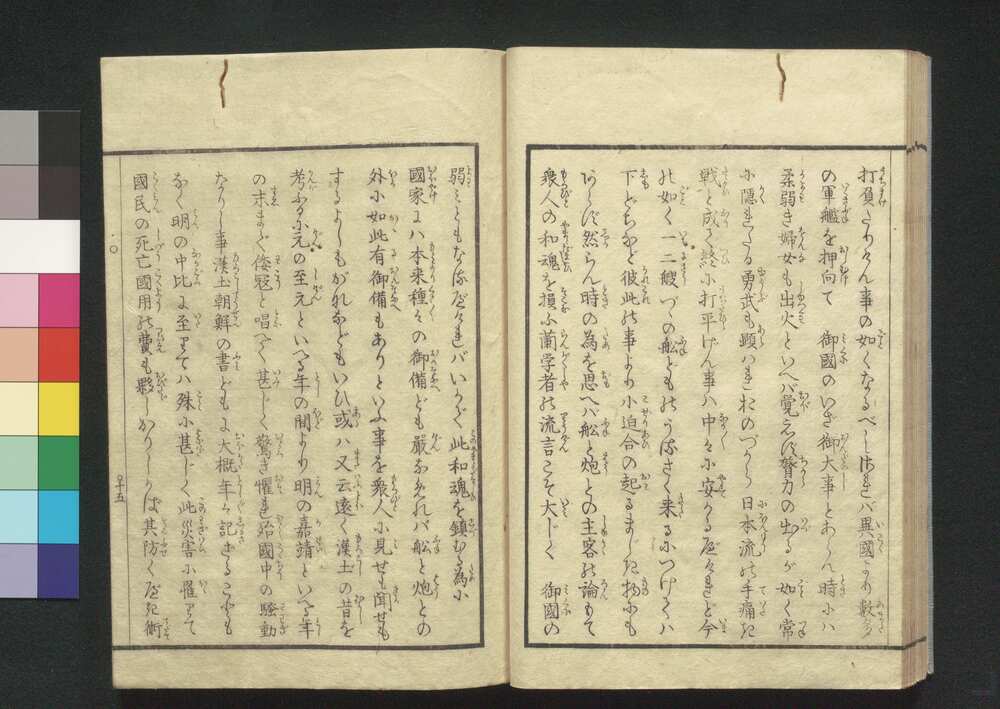 打負たらん事の如くなるべしされバ異國より數多
の軍艦を押向て 御國のいさ御大事とあらん時ハ
柔弱き婦女も出火といへバ覚えぬ膂力の出るが如く常
に隠れたる勇武も顕ハれおのづから日本流の手痛き
戦と成て終に打平げん事ハ中々に安かるべけれど今
の如く一二艘づゝの船どものうるさく来るにつけてハ
下ざまなど彼此の事より小迫合の起るまじき物にも
あらず然らん時の為を思へバ船と炮との主客の論もて
衆人の和魂を損ふ蘭学者の流言こそ大じく 御國の
弱ミともなるべけれバいかで此和魂を鎮むる為に
國家にハ本来種々の御備ども厳なるれバ船と炮との
外に如此有御備もありといふ事を衆人に見せも聞せも
するよしもがななどもいひ或ハ又云遠く漢土の昔を
考ふるに元の至元といへる年の間より明の嘉靖といへる年
の末まで倭冦と唱へて甚じく驚き懼れ殆國中の騒動
なりし事漢土朝鮮の書どもに大概年々記さるゝことも
なく明の中比に至りてハ殊に甚じく此災害に罹りて
國民の死亡國用の費も夥しかりしかば其防ぐべき術
五十五